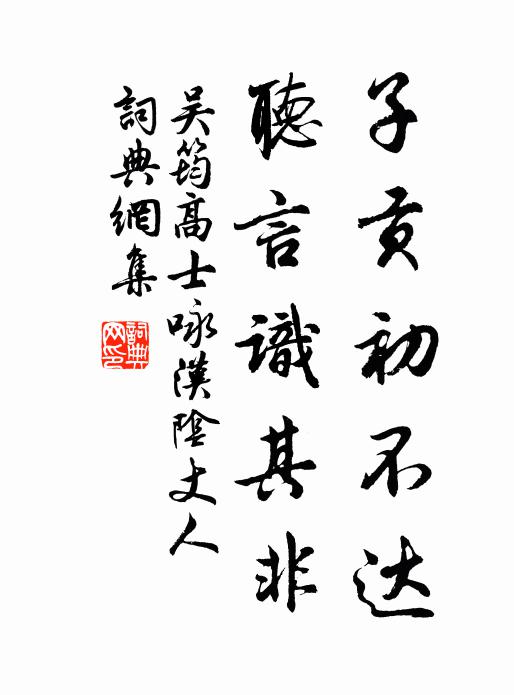 子贡初不达
聽言識其非
吴筠高士咏漢陰丈人
詞典網集
詞典网印